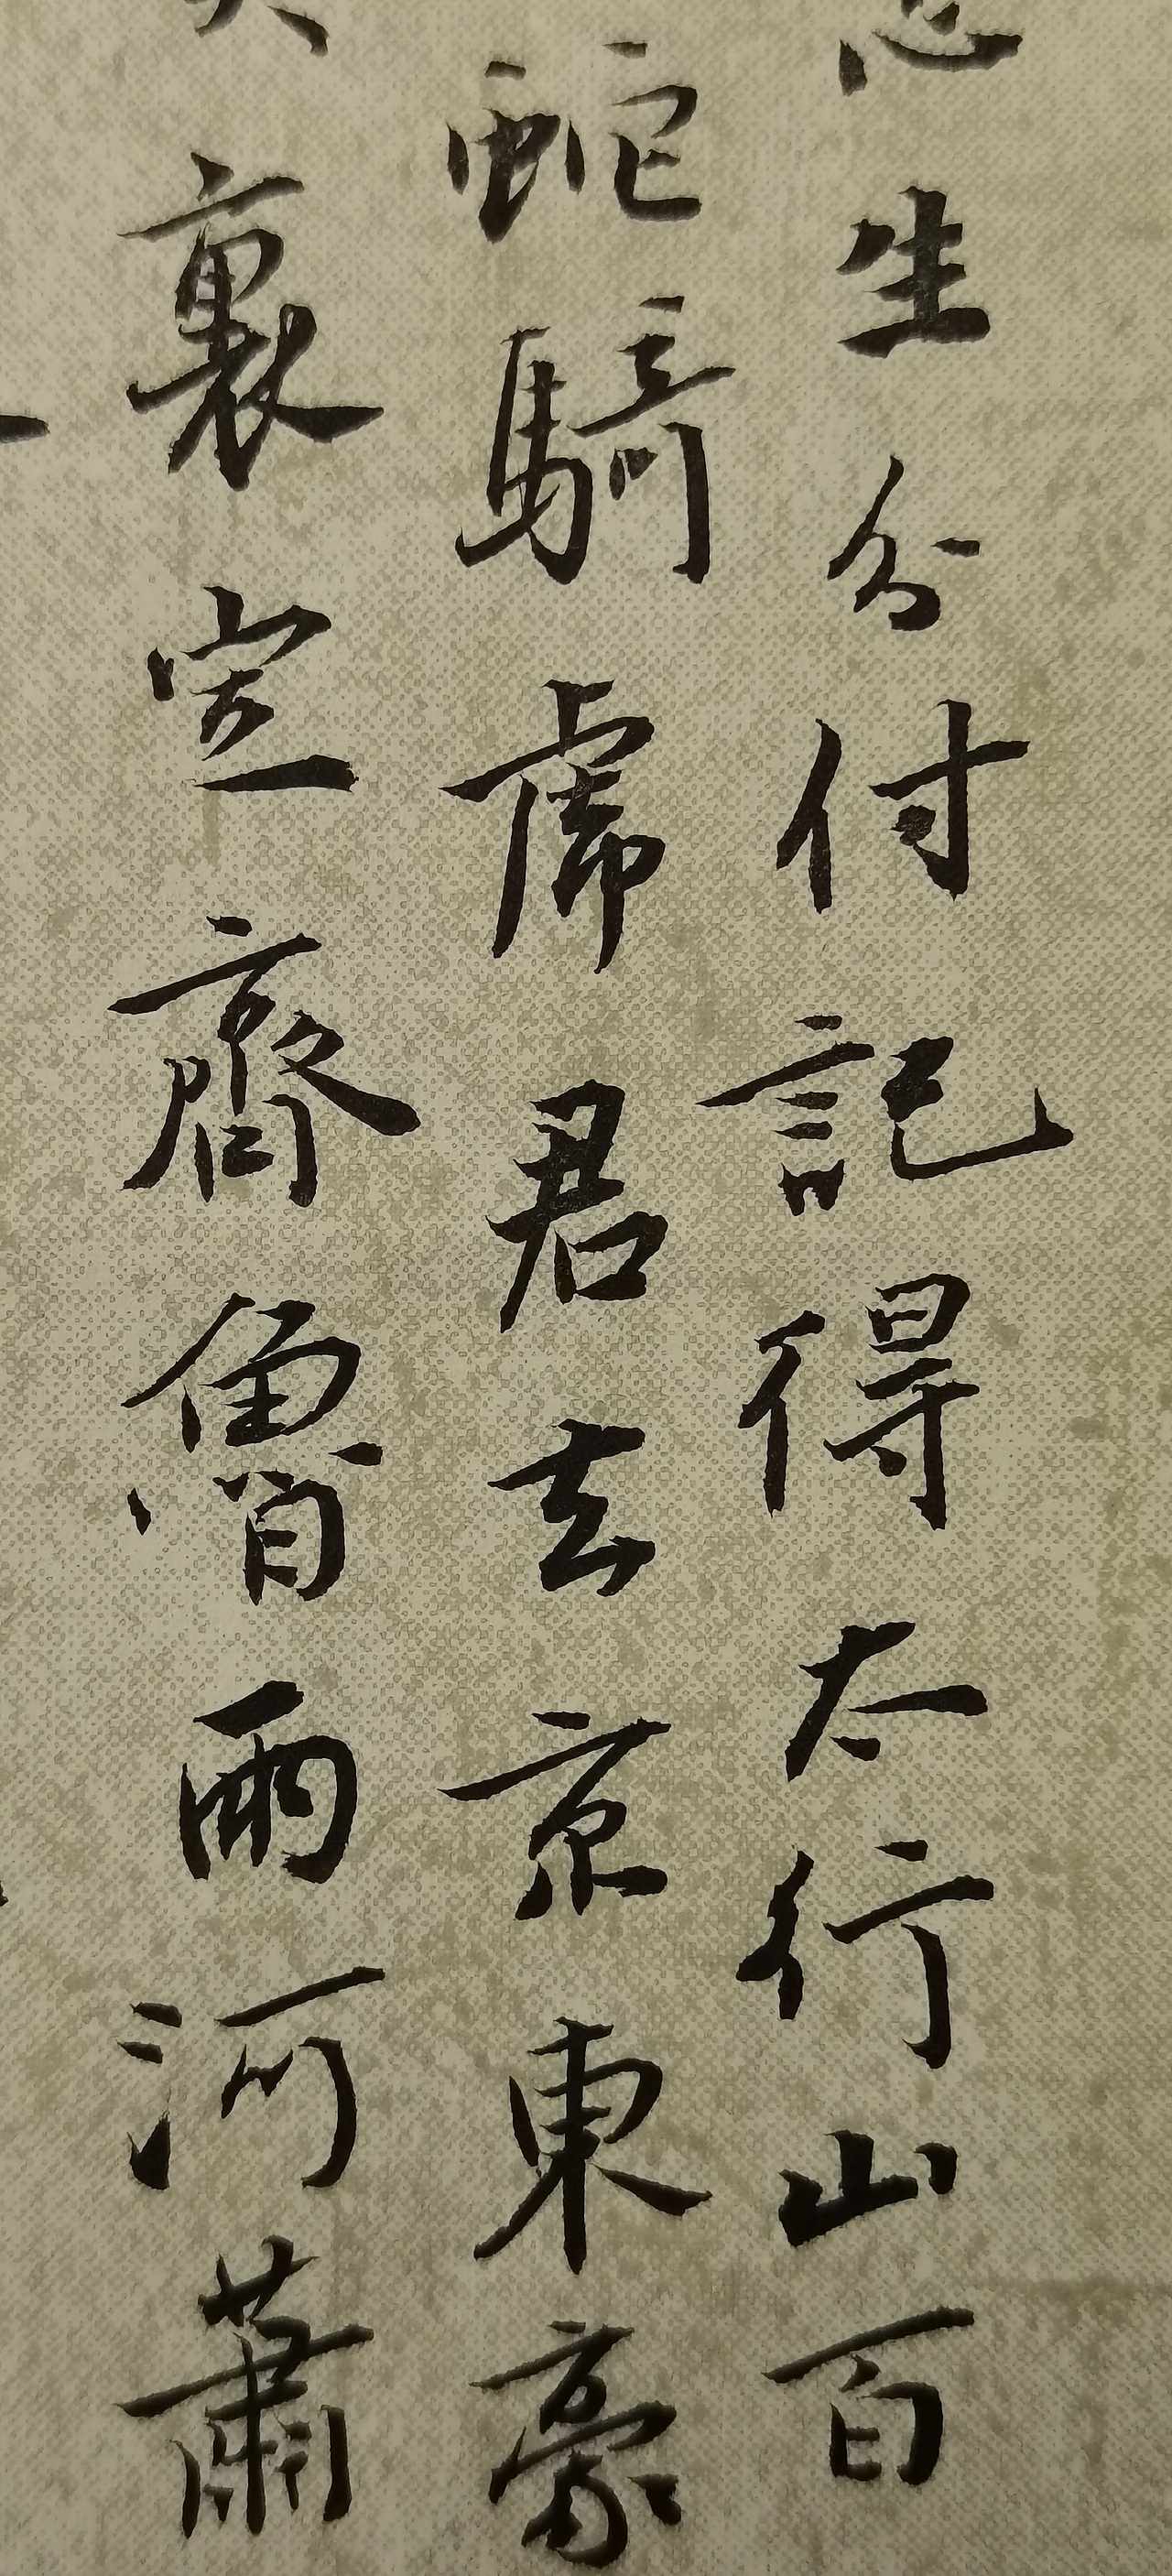 生分付記得太行山百
蛇騎虎君去京東豪
裏定齊魯兩河蕭